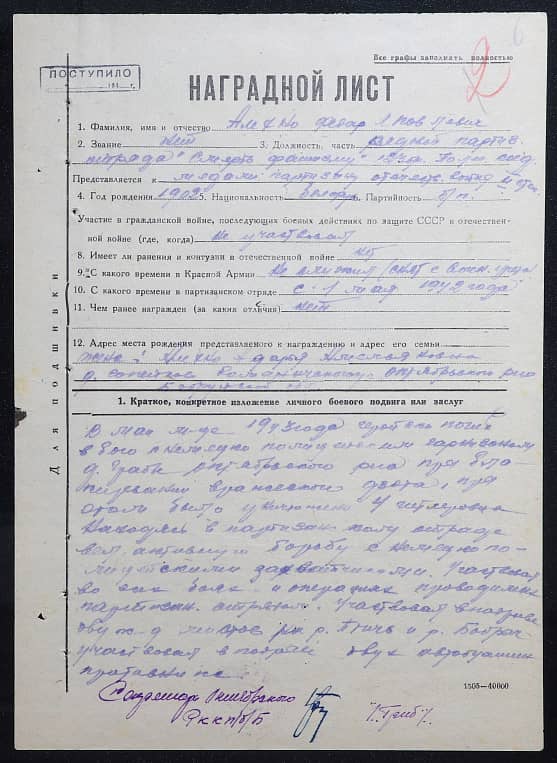 Все графы заполнять полностью
2
ПОСТУПИЛО
НАГРАДНОЙ ЛИСТ
1. Фамилия, имя и отчество
2. Звание нет 3. Должность, часть рядовой партиз.
отряда "Смерть фашизму"
Представляется к медали партизану отечеств. войны II ст.
4. Год рождения 1902 5. Национальность белорус 6. Партийность б/п.
Участие в гражданской войне, последующих боевых действиях по защите СССР и отечествен-
ной войне (где, когда) не участвовал
8. Имеет ли ранения и контузии в отечественной войне нет
9. С какого времени в Красной Армии не служил
10. С какого времени в партизанском отряде с 1 мая 1942 года
11. Чем ранее награжден (за какие отличия) нет
12. Адрес места рождения представляемого к награждению и адрес его семьи
жена: Дарья
Октябрьского р-на
Для подшивки
1. Краткое, конкретное изложение личного боевого подвига или заслуг
В мае м-це 1943 года погиб
в бою с немецко полицейским гарнизоном
д. Октябрьского р-на при бло-
кировании вражеского дзота, при
этом было уничтожено 4 гитлеровца
Находясь в партизанском отряде
вел активную борьбу с немецко фа-
захватчиками. Участвовал
во всех боях и операциях проводимых
партизан. отрядом. Участвовал в подрыве
двух ж-д мостов р. Птичь и р.
участвовал в двух автомашин
противника.
Секретарь Октябрьского
РК КП/б/Б
1505—40000